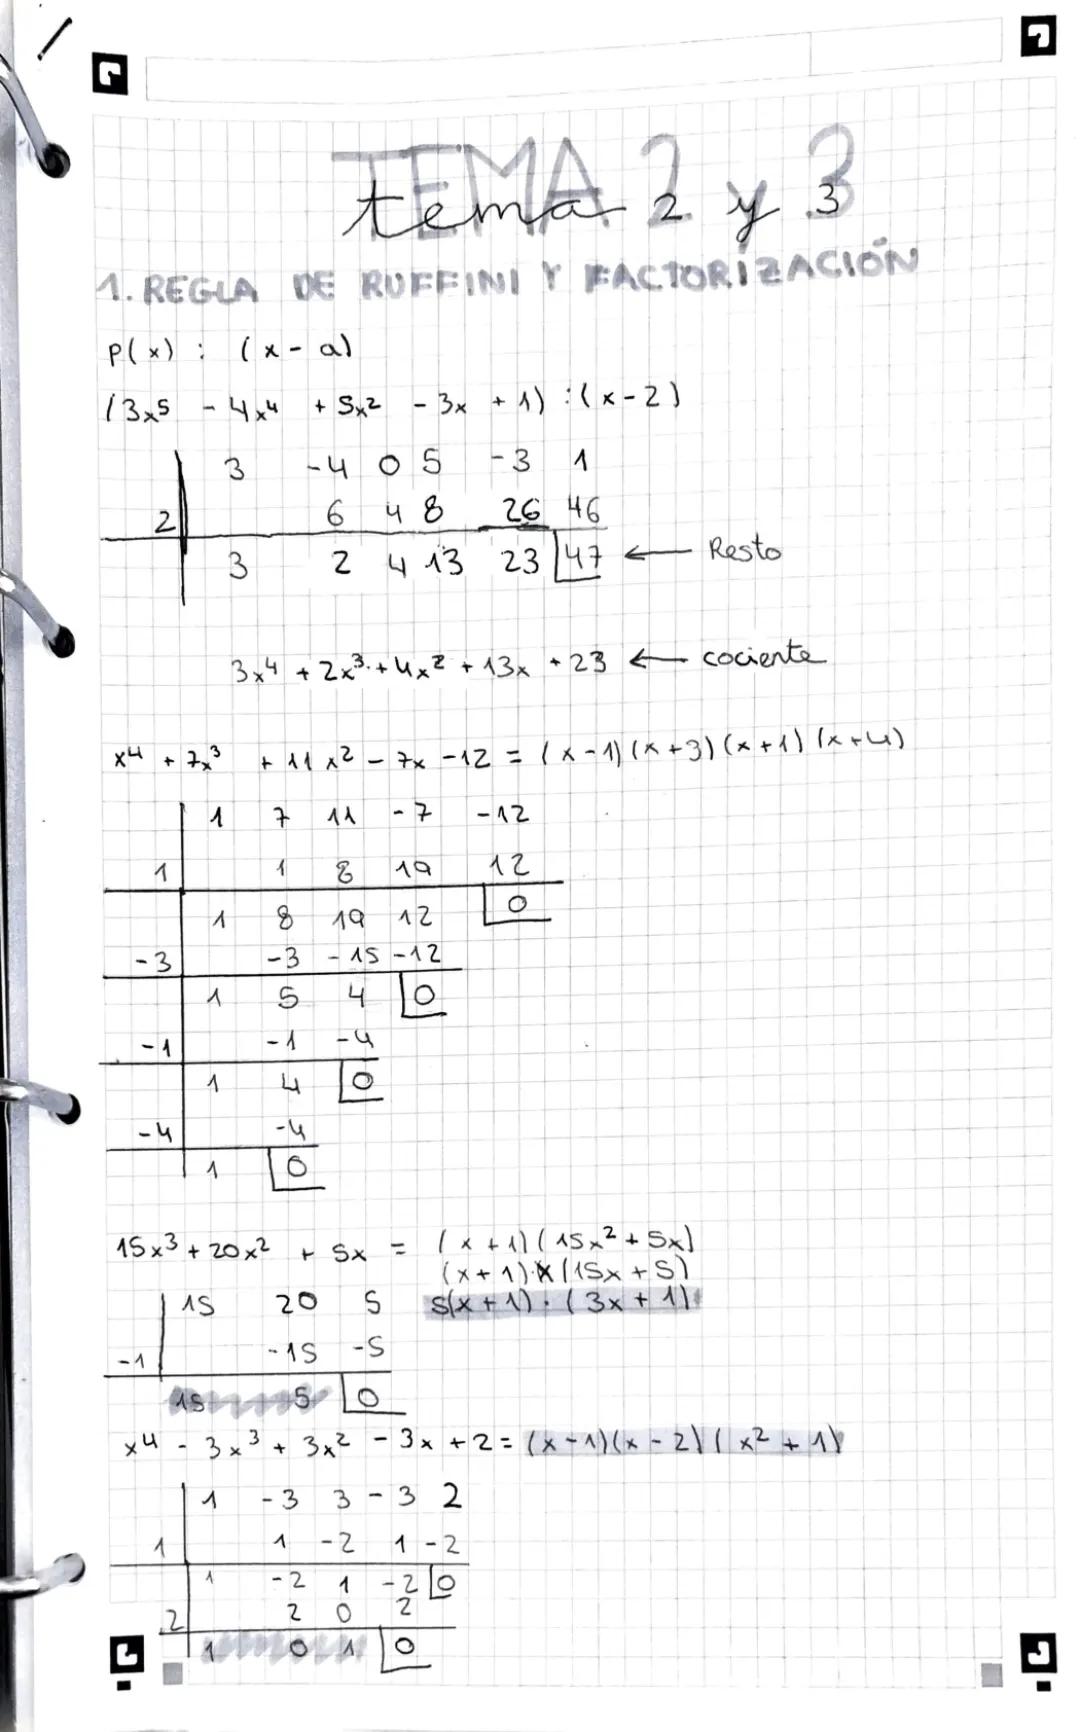 TEMA 2 y 3
tema 2 y 3
1. REGLA DE RUFFINI Y FACTORIZACIÓN
P(x) : (x - a)
(3x⁵ - 4x⁴ + 5x² - 3x + 1) : (x - 2)
3 -4 0 5 -3 1
2 6 4 8 26 46
3 2 4 13 23 47 ← Resto
3x⁴ + 2x³ + 4x² + 13x + 23 ← cociente
x⁴ + 7x³ + 11x² - 7x - 12 = (x - 1)(x + 3)(x + 1)(x + 4)
1 7 11 -7 -12
1 1 8 19 12
1 8 19 12 0
-3 -3 -15 -12
1 5 4 0
-1 -1 -4
1 4 0
-4 -4
1 0
15x³ + 20x² + 5x = (x + 1)(15x² + 5x)
(x + 1)·x(15x + 5)
15 20 5 5(x + 1)·(3x + 1)
-1 -15 -5
15 5 0
x⁴ - 3x³ + 3x² - 3x + 2 = (x - 1)(x - 2)(x² + 1)
1 -3 3 -3 2
1 1 -2 1 -2
1 -2 1 -2 0
2 2 0 2
1 0 1 0